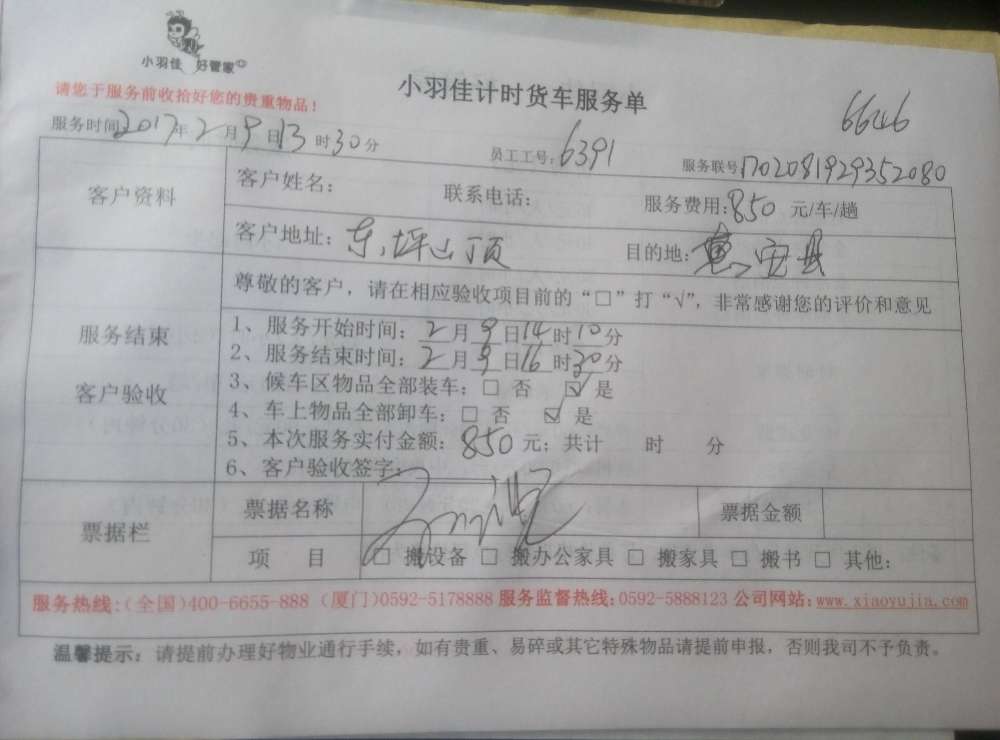 小羽佳 好管家
请您于服务前收拾好您的贵重物品！
小羽佳计时货车服务单
6646
服务时间2017年2月9日13时30分
员工工号:6391
服务联号1702081929352080
客户资料
客户姓名: 联系电话: 服务费用:850 元/车/趟
客户地址: 东坪山顶 目的地:惠安县
服务结束
客户验收
尊敬的客户，请在相应验收项目前的“□”打“√”，非常感谢您的评价和意见
1、服务开始时间：2月9日14时10分
2、服务结束时间：2月9日16时30分
3、候车区物品全部装车：□ 否 ☑ 是
4、车上物品全部卸车：□ 否 ☑ 是
5、本次服务实付金额：850元；共计 时 分
6、客户验收签字:
票据栏
票据名称 票据金额
项 目 □ 搬设备 □ 搬办公家具 □ 搬家具 □ 搬书 □ 其他:
服务热线:(全国)400-6655-888 (厦门)0592-5178888 服务监督热线:0592-5888123 公司网站:www.xiaoyujia.com
温馨提示：请提前办理好物业通行手续，如有贵重、易碎或其它特殊物品请提前申报，否则我司不予负责。